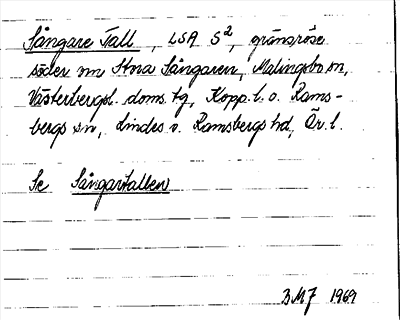 Sångare Tall, LSA S2, gränsröse
söder om Stora Sångaren, Malingsbo sn,
Västerbergsl. doms. tg, Kopp. l. o. Rams-
bergs sn, Lindes o. Ramsbergs hd, Ör. l.
Se Sångartallen
BMJ 1969